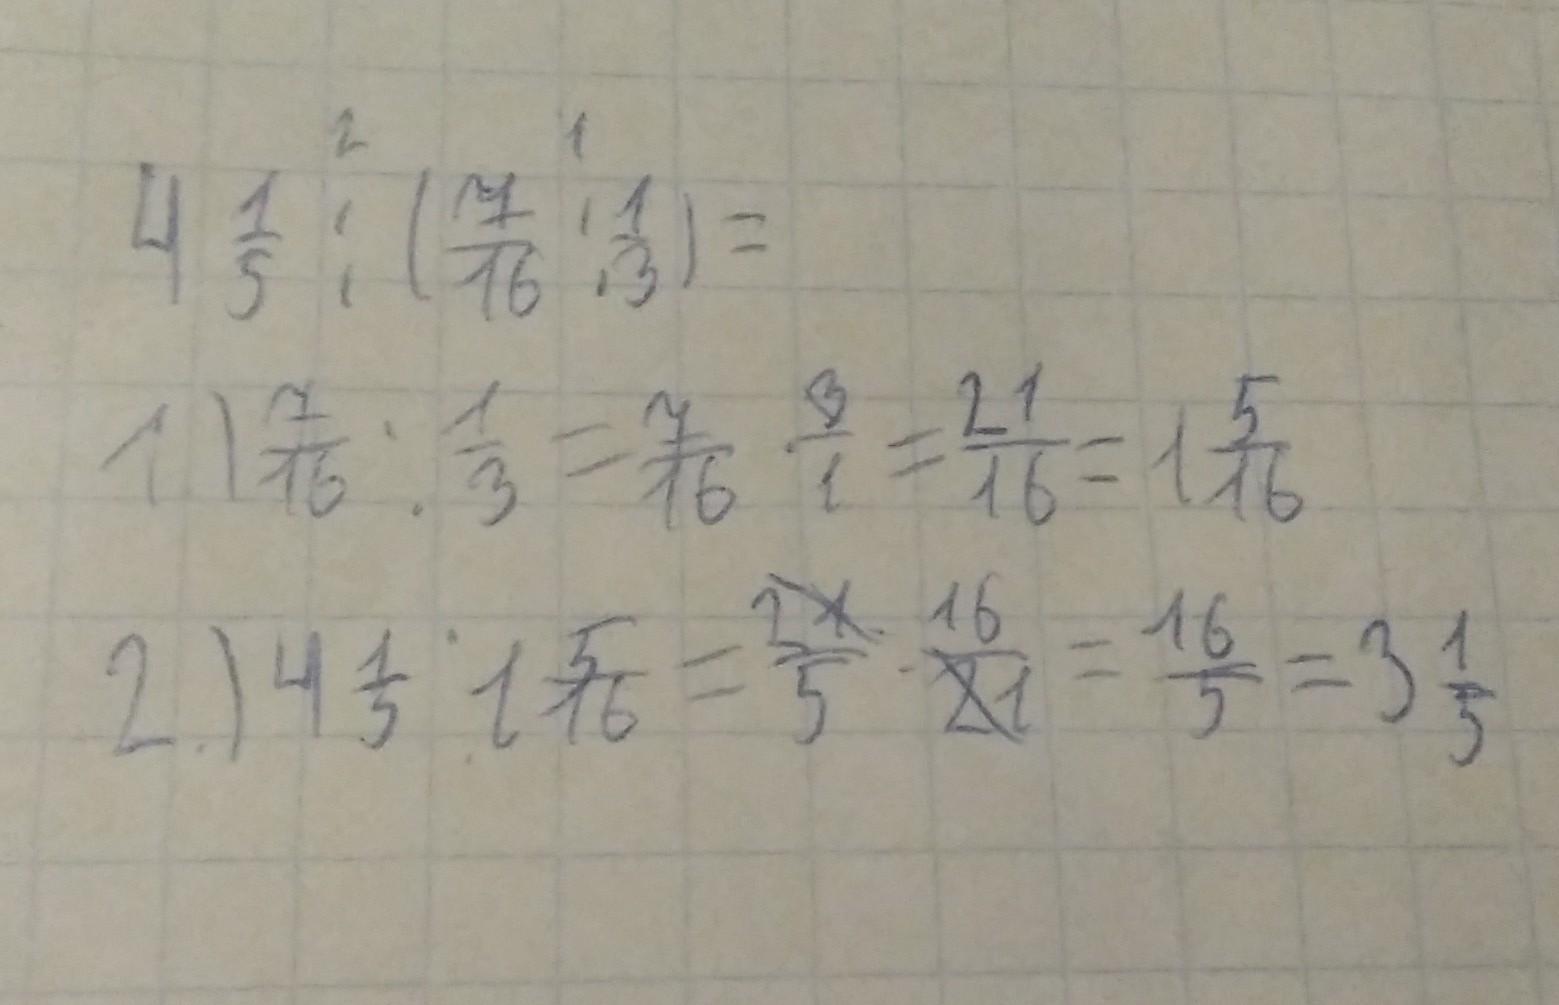 2 1
4 1/5 : (7/16 : 1/3) =
1) 7/16 : 1/3 = 7/16 3/1 = 21/16 = 1 5/16
2.) 4 1/5 : 1 5/16 = 21/5 · 16/21 = 16/5 = 3 1/5